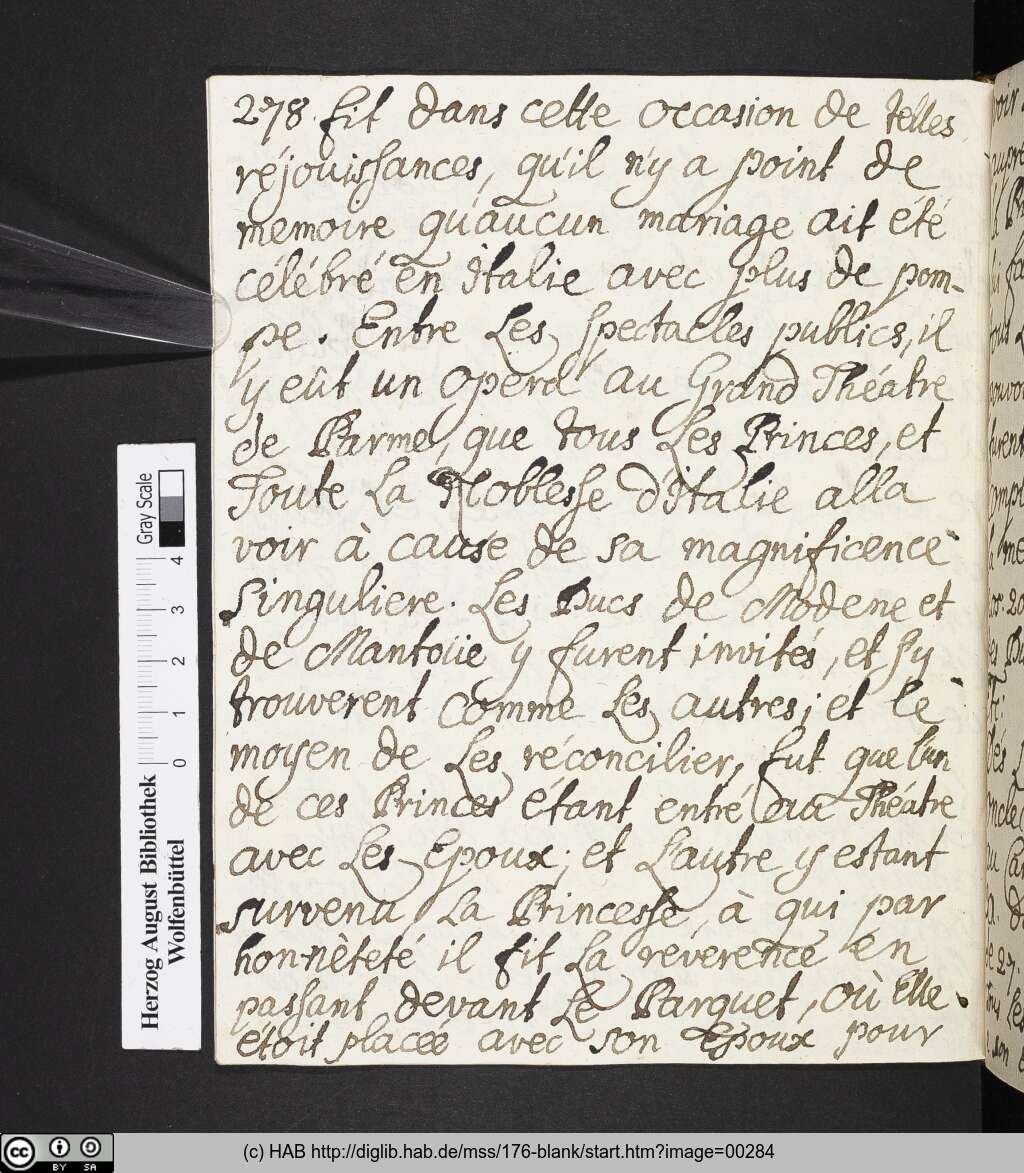 278. fit dans cette occasion de telles
réjouissances, qu'il n'y a point de
memoire qu'aucun mariage ait été
célébré en Italie avec plus de pom-
pe. Entre Les spectacles publics, il
y eût un Opera au Grand Théatre
de Parme, que tous Les Princes, et
Toute La Noblesse d'Italie alla
voir à cause de sa magnificence
singuliere. Les Ducs de Modene et
de Mantoüe y furent invités, et s'y
trouverent comme Les autres; et le
moyen de Les réconcilier, fut que l'un
de ces Princes étant entré au Théatre
avec Les Epoux; et L'autre y estant
survenu La Princesse, à qui par
honnèteté il fit La reverence en
passant devant Le Parquet, où Elle
étoit placée avec son Epoux pour
Herzog August Bibliothek
Wolfenbüttel
0 1 2 3 4
Gray Scale
(c) HAB http://diglib.hab.de/mss/176-blank/start.htm?image=00284
cc BY SA